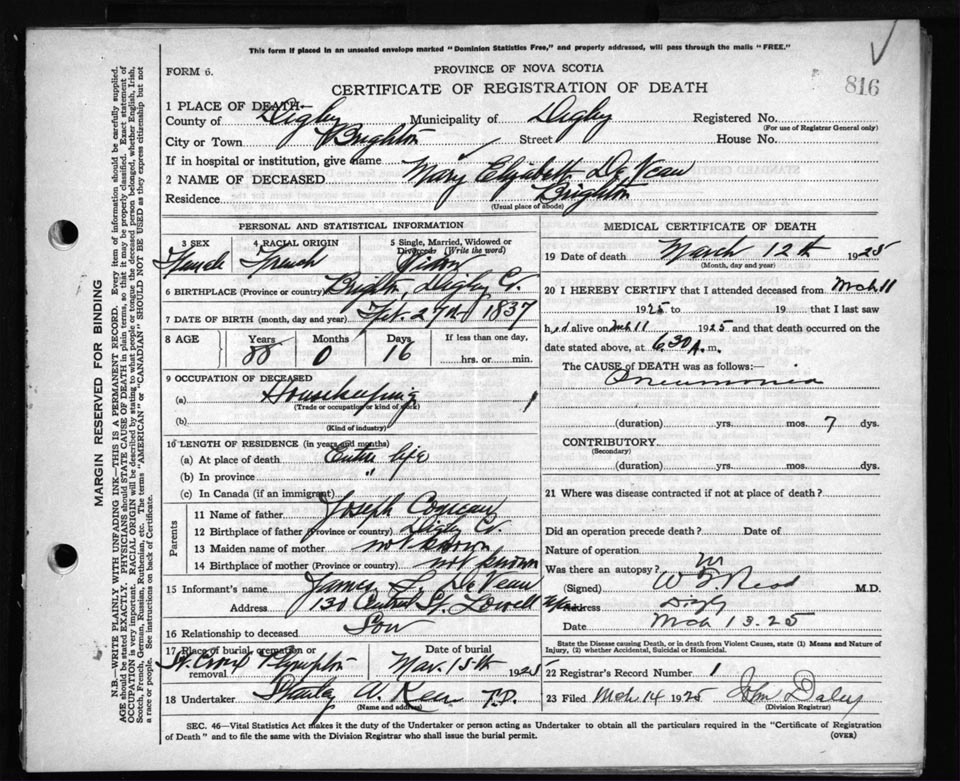 This form if placed in an unsealed envelope marked "Dominion Statistics Free," and properly addressed, will pass through the mails "FREE."
FORM 6.
PROVINCE OF NOVA SCOTIA
816
CERTIFICATE OF REGISTRATION OF DEATH
1 PLACE OF DEATH—
County of Digby Municipality of Digby Registered No.
(For use of Registrar General only)
City or Town Brighton Street House No.
If in hospital or institution, give name
2 NAME OF DECEASED Mary Elizabeth De Veau
Residence Brighton
(Usual place of abode)
PERSONAL AND STATISTICAL INFORMATION
3 SEX 4 RACIAL ORIGIN 5 Single, Married, Widowed or Divorced (Write the word)
Female French Widow
6 BIRTHPLACE (Province or country) Brighton, Digby Co.
7 DATE OF BIRTH (month, day and year) 1837
8 AGE Years Months Days If less than one day,
88 0 16 hrs. or min.
9 OCCUPATION OF DECEASED
(a) Housekeeping
(Trade or occupation or kind of work)
(b)
(Kind of industry)
10 LENGTH OF RESIDENCE (in years and months)
(a) At place of death Entire life
(b) In province "
(c) In Canada (if an immigrant)
Parents
11 Name of father Joseph Comeau
12 Birthplace of father (Province or country) Digby Co.
13 Maiden name of mother not known
14 Birthplace of mother (Province or country) not known
15 Informant's name James L. De Veau
Address 130 Central St. Lowell Mass
16 Relationship to deceased Son
17 Place of burial, cremation or removal Date of burial
St. Croix Plympton Mar. 15th 1925
18 Undertaker Stanley A. Kerr F.D.
(Name and address)
MEDICAL CERTIFICATE OF DEATH
19 Date of death March 12th 1925
(Month, day and year)
20 I HEREBY CERTIFY that I attended deceased from Mch 11
1925 to 19 that I last saw
her alive on Mch 11 1925 and that death occurred on the
date stated above, at 6.30 A.m.
The CAUSE OF DEATH was as follows:—
Pneumonia
(duration) yrs. mos. 7 dys.
CONTRIBUTORY
(Secondary)
(duration) yrs. mos. dys.
21 Where was disease contracted if not at place of death?
Did an operation precede death? Date of
Nature of operation
Was there an autopsy? No
(Signed) W Read M.D.
Address Digby
Date Mch 13.25
State the Disease causing Death, or in death from Violent Causes, state (1) Means and Nature of Injury, (2) whether Accidental, Suicidal or Homicidal.
22 Registrar's Record Number 1
23 Filed Mch 14 1925 John Daley
(Division Registrar)
SEC. 46—Vital Statistics Act makes it the duty of the Undertaker or person acting as Undertaker to obtain all the particulars required in the "Certificate of Registration
of Death" and to file the same with the Division Registrar who shall issue the burial permit. (OVER)
MARGIN RESERVED FOR BINDING
N.B.—WRITE PLAINLY WITH UNFADING INK—THIS IS A PERMANENT RECORD. Every item of information should be carefully supplied.
AGE should be stated EXACTLY. PHYSICIANS should STATE CAUSE OF DEATH in plain terms, so that it may be properly classified. Exact statement of
OCCUPATION is very important. RACIAL ORIGIN will be described by stating to what people or tongue the deceased person belonged, whether English, Irish,
Scotch, French, German, Russian, Ruthenian, etc. The terms "AMERICAN" or "CANADIAN" SHOULD NOT BE USED as they express citizenship but not
a race or people. See instructions on back of Certificate.